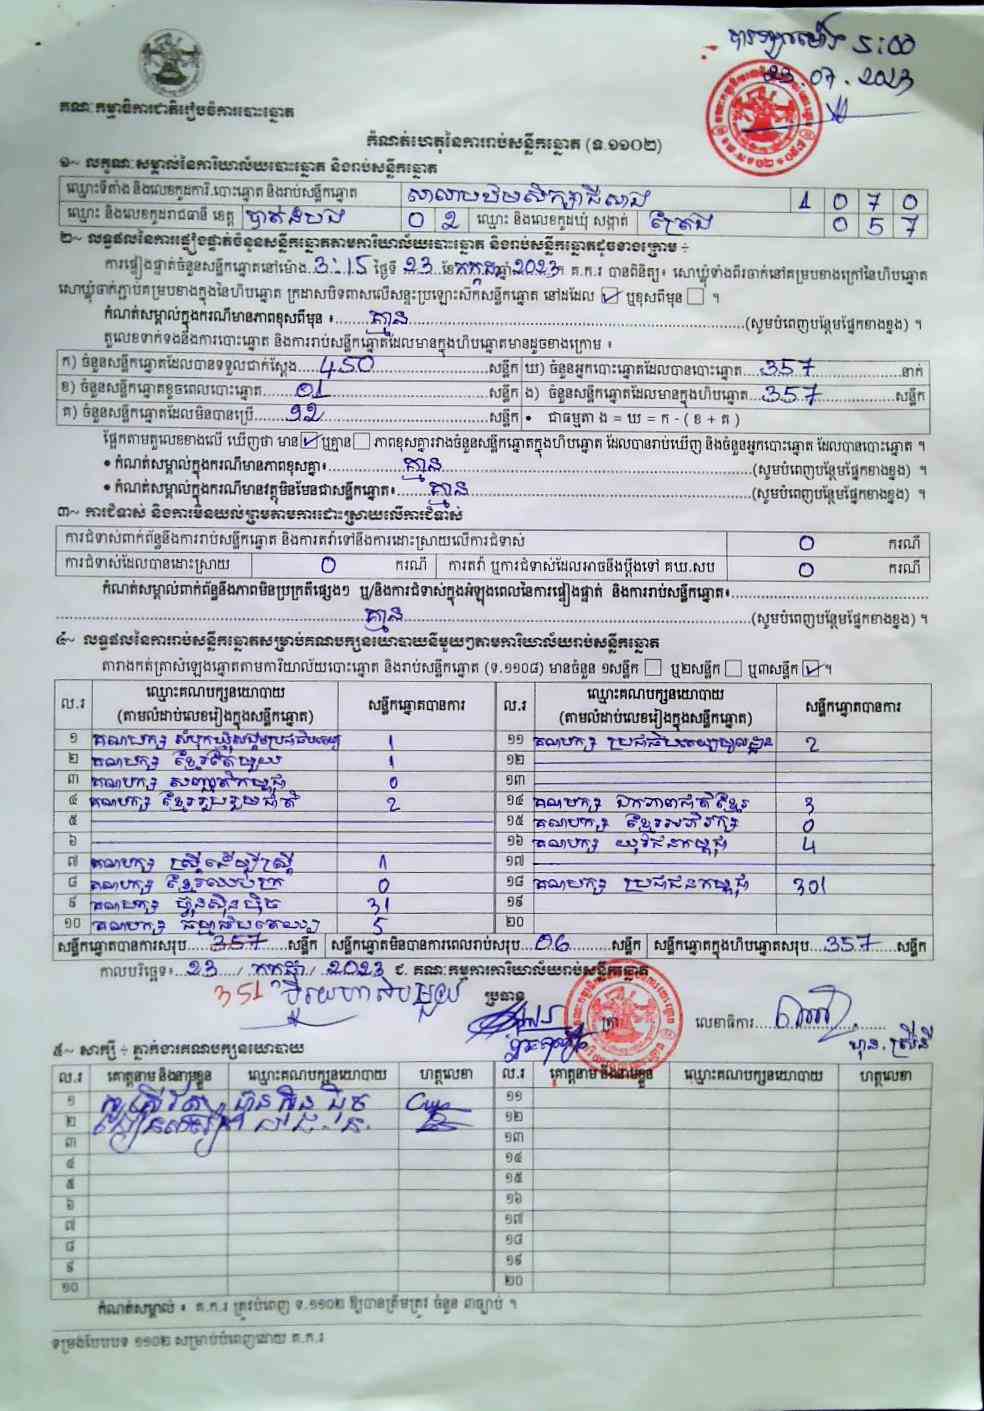 បោះឆ្នោតម៉ោង ៖00
23.07.2023
គណៈកម្មាធិការជាតិរៀបចំការបោះឆ្នោត
កំណត់ហេតុនៃការរាប់សន្លឹកឆ្នោត (ទ.១១០២)
១~ លក្ខណៈសម្គាល់នៃការិយាល័យបោះឆ្នោត និងរាប់សន្លឹកឆ្នោត
ឈ្មោះទីតាំង និងលេខកូដការិ.បោះឆ្នោត និងរាប់សន្លឹកឆ្នោត សាលាបឋមសិក្សា 1 0 7 0
ឈ្មោះ និងលេខកូដរាជធានី ខេត្ត បាត់ដំបង 0 2 ឈ្មោះ និងលេខកូដឃុំ សង្កាត់ ត្រែង 0 5 7
២~ លទ្ធផលនៃការផ្ទៀងផ្ទាត់ចំនួនសន្លឹកឆ្នោតតាមការិយាល័យបោះឆ្នោត និងរាប់សន្លឹកឆ្នោតដូចខាងក្រោម ÷
ការផ្ទៀងផ្ទាត់ចំនួនសន្លឹកឆ្នោតនៅម៉ោង 3:15 ថ្ងៃទី 23 ខែ កក្កដា ឆ្នាំ 2023 ។ គ.ក.រ បានពិនិត្យ៖ សោឃ្លុំទាំងពីរចាក់នៅគម្របខាងក្រៅនៃហិបឆ្នោត
សោឃ្លុំចាក់ភ្ជាប់គម្របខាងក្នុងនៃហិបឆ្នោត ក្រដាសបិទពាសលើសន្ទះប្រឡោះសឹកសន្លឹកឆ្នោត នៅដដែល ☑ ឬខុសពីមុន ☐ ។
កំណត់សម្គាល់ក្នុងករណីមានភាពខុសពីមុន ៖ គ្មាន (សូមបំពេញបន្ថែមផ្នែកខាងខ្នង) ។
តួលេខទាក់ទងនឹងការបោះឆ្នោត និងការរាប់សន្លឹកឆ្នោតដែលមានក្នុងហិបឆ្នោតមានដូចខាងក្រោម ៖
ក) ចំនួនសន្លឹកឆ្នោតដែលបានទទួលជាក់ស្ដែង 450 សន្លឹក ឃ) ចំនួនអ្នកបោះឆ្នោតដែលបានបោះឆ្នោត 357 នាក់
ខ) ចំនួនសន្លឹកឆ្នោតខូចពេលបោះឆ្នោត 01 សន្លឹក ង) ចំនួនសន្លឹកឆ្នោតដែលមានក្នុងហិបឆ្នោត 357 សន្លឹក
គ) ចំនួនសន្លឹកឆ្នោតដែលមិនបានប្រើ 92 សន្លឹក • ជាធម្មតា ង = ឃ = ក - ( ខ + គ )
ផ្អែកតាមតួលេខខាងលើ ឃើញថា មាន ☑ ឬគ្មាន ☐ ភាពខុសគ្នារវាងចំនួនសន្លឹកឆ្នោតក្នុងហិបឆ្នោត ដែលបានរាប់ឃើញ និងចំនួនអ្នកបោះឆ្នោត ដែលបានបោះឆ្នោត ។
• កំណត់សម្គាល់ក្នុងករណីមានភាពខុសគ្នា៖ គ្មាន (សូមបំពេញបន្ថែមផ្នែកខាងខ្នង) ។
• កំណត់សម្គាល់ក្នុងករណីមានវត្ថុមិនមែនជាសន្លឹកឆ្នោត៖ គ្មាន (សូមបំពេញបន្ថែមផ្នែកខាងខ្នង) ។
៣~ ការជំទាស់ និងការមិនយល់ព្រមតាមការដោះស្រាយលើការជំទាស់
ការជំទាស់ពាក់ព័ន្ធនឹងការរាប់សន្លឹកឆ្នោត និងការតវ៉ាទៅនឹងការដោះស្រាយលើការជំទាស់ 0 ករណី
ការជំទាស់ដែលបានដោះស្រាយ 0 ករណី ការតវ៉ា ឬការជំទាស់ដែលអាចនឹងប្ដឹងទៅ គឃ.សប 0 ករណី
កំណត់សម្គាល់ពាក់ព័ន្ធនឹងភាពមិនប្រក្រតីផ្សេងៗ ឬ/និងការជំទាស់ក្នុងអំឡុងពេលនៃការផ្ទៀងផ្ទាត់ និងការរាប់សន្លឹកឆ្នោត៖
គ្មាន (សូមបំពេញបន្ថែមផ្នែកខាងខ្នង) ។
៤~ លទ្ធផលនៃការរាប់សន្លឹកឆ្នោតសម្រាប់គណបក្សនយោបាយនីមួយៗតាមការិយាល័យរាប់សន្លឹកឆ្នោត
តារាងកត់ត្រាសំឡេងឆ្នោតតាមការិយាល័យបោះឆ្នោត និងរាប់សន្លឹកឆ្នោត (ទ.១១០៨) មានចំនួន ១សន្លឹក ☐ ឬ២សន្លឹក ☐ ឬ៣សន្លឹក ☑ ។
ល.រ ឈ្មោះគណបក្សនយោបាយ (តាមលំដាប់លេខរៀងក្នុងសន្លឹកឆ្នោត) សន្លឹកឆ្នោតបានការ ល.រ ឈ្មោះគណបក្សនយោបាយ (តាមលំដាប់លេខរៀងក្នុងសន្លឹកឆ្នោត) សន្លឹកឆ្នោតបានការ
១ គណបក្ស សំបុកឃ្មុំសង្គមប្រជាធិបតេយ្យ 1 ១១ គណបក្ស ប្រជាធិបតេយ្យមូលដ្ឋាន 2
២ គណបក្ស ខ្មែរតែមួយ 1 ១២
៣ គណបក្ស សញ្ជាតិកម្ពុជា 0 ១៣
៤ គណបក្ស ខ្មែររួបរួមជាតិ 2 ១៤ គណបក្ស ឯកភាពជាតិខ្មែរ 3
៥ ១៥ គណបក្ស ខ្មែរអភិរក្ស 0
៦ ១៦ គណបក្ស យុវជនកម្ពុជា 4
៧ គណបក្ស ស្ត្រីដើម្បីស្ត្រី 1 ១៧
៨ គណបក្ស ខ្មែរឈប់ក្រ 0 ១៨ គណបក្ស ប្រជាជនកម្ពុជា 301
៩ គណបក្ស ហ៊្វុនស៊ិនប៉ិច 31 ១៩
១០ គណបក្ស ធម្មាធិបតេយ្យ 5 ២០
សន្លឹកឆ្នោតបានការសរុប 357 សន្លឹក សន្លឹកឆ្នោតមិនបានការពេលរាប់សរុប 06 សន្លឹក សន្លឹកឆ្នោតក្នុងហិបឆ្នោតសរុប 357 សន្លឹក
កាលបរិច្ឆេទ៖ 23 / កក្កដា / 2023 ជ. គណៈកម្មការការិយាល័យរាប់សន្លឹកឆ្នោត
351 បីរយហាសិបមួយ ប្រធាន ត្រា លេខាធិការ
៥~ សាក្សី ÷ ភ្នាក់ងារគណបក្សនយោបាយ
ល.រ គោត្តនាម និងនាមខ្លួន ឈ្មោះគណបក្សនយោបាយ ហត្ថលេខា ល.រ គោត្តនាម និងនាមខ្លួន ឈ្មោះគណបក្សនយោបាយ ហត្ថលេខា
១ ហ៊្វុនស៊ិនប៉ិច ១១
២ ១២
៣ ១៣
៤ ១៤
៥ ១៥
៦ ១៦
៧ ១៧
៨ ១៨
៩ ១៩
១០ ២០
កំណត់សម្គាល់ ៖ គ.ក.រ ត្រូវបំពេញ ទ.១១០២ ឱ្យបានត្រឹមត្រូវ ចំនួន ៣ច្បាប់ ។
ទម្រង់បែបបទ ១១០២ សម្រាប់បំពេញដោយ គ.ក.រ